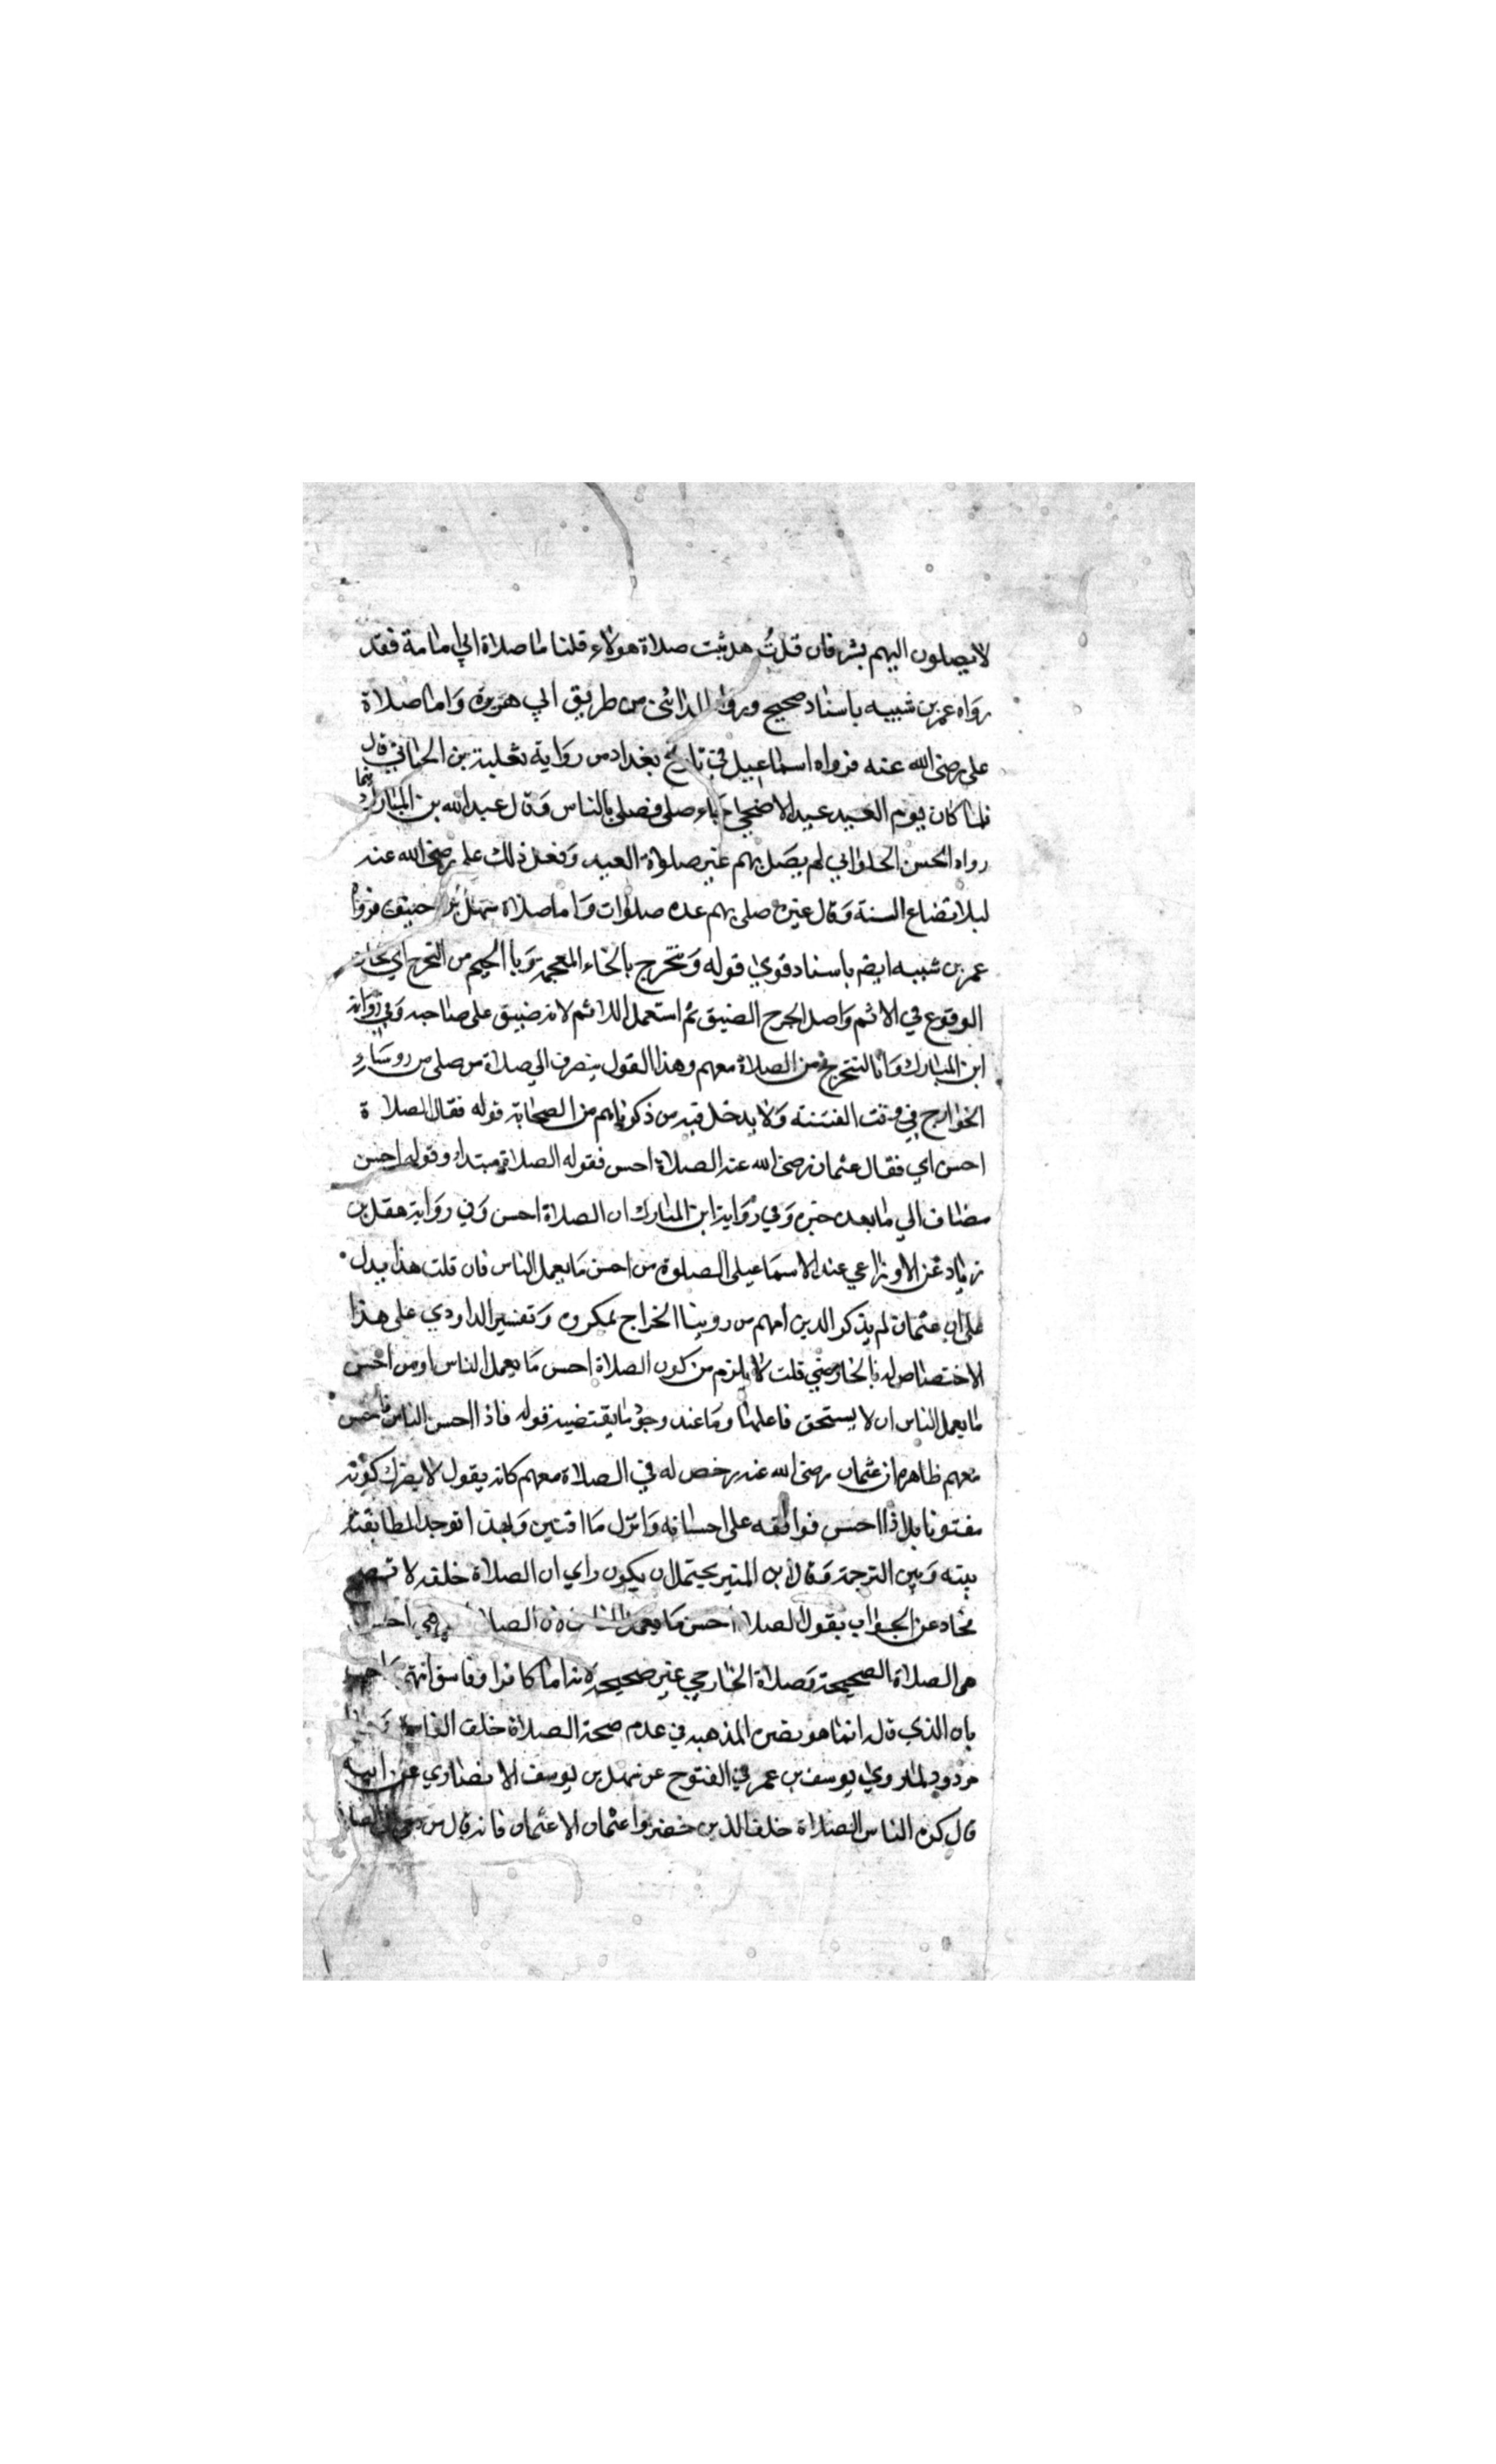 لا يصلون اليهم بشر فان قلتُ هل ثبت صلاة هولاء قلنا اما صلاة ابي امامة فقد
رواه عمر بن شبيه باسناد صحيح ورواه المدائني من طريق ابي هريرة واما صلاة
علي رضي الله عنه فرواه اسماعيل في تاريخ بغداد من رواية ثعلبة بن الحماني قال
فلما كان يوم العيد عيد الاضحي جاء صلي فصلي بالناس وقال عبد الله بن المبارك فيما
رواه الحسن الحلواني لم يصل بهم غير صلوة العيد وفعل ذلك علي رضي الله عنه
ليلا تضاع السنة وقال غيره صلي بهم عدة صلوات واما صلاة سهل بن حنيف فرواه
عمر بن شبيه ايضا باسناد قوي قوله ونتحرج بالحاء المعجمة وبالجيم من التحرج اي نخاف
الوقوع في الاثم واصل الحرج الضيق ثم استعمل للاثم لانه ضيق على صاحبه وفي رواية
ابن المبارك وانا لنتحرج من الصلاة معهم وهذا القول ينصرف الي صلاة من صلى من روساء
الخوارج في وقت الفتنة ولا يدخل فيه من ذكرناهم من الصحابة قوله فقال الصلاة
احسن اي فقال عثمان رضي الله عنه الصلاة احسن فقوله الصلاة مبتدا وقوله احسن
مضاف الي ما بعده خبره وفي رواية ابن المبارك ان الصلاة احسن وفي رواية هقل بن
زياد عن الاوزاعي عند الاسماعيلي الصلوة من احسن ما يعمل الناس فان قلت هذا يدل
على ان عثمان لم يذكر الذين امهم من روينا الخراج بمكروه وتفسير الداودي على هذا
لا اختصاص له بالخارجي قلت لا يلزم من كون الصلاة احسن ما يعمل الناس او من احسن
ما يعمل الناس ان لا يستحق فاعلها وما عند وجود ما يقتضيه قوله فاذا احسن الناس فاحسن
معهم ظاهره ان عثمان رضي الله عنه رخص له في الصلاة معهم كانه يقول لا يضرك كونه
مفتونا بل اذا احسن فوافقه على احسانه واترك ما افتتن وبهذا توجد المطابقة
بينه وبين الترجمة وقال ابن المنير يحتمل ان يكون راي ان الصلاة خلفه لا تصح
فحاد عن الجواب بقوله الصلاة احسن ما يعمل الناس لان الصلاة هي احسن
هي الصلاة الصحيحة وصلاة الخارجي غير صحيحة لانه اما كافر او فاسق انتهى
بان الذي قاله انما هو نصره لمذهبه في عدم صحة الصلاة خلف الفاسق
مردود لما روي يوسف بن عمر في الفتوح عن سهل بن يوسف الانصاري عن ابيه
قال كره الناس الصلاة خلف الذين حضروا عثمان الا عثمان فانه قال من